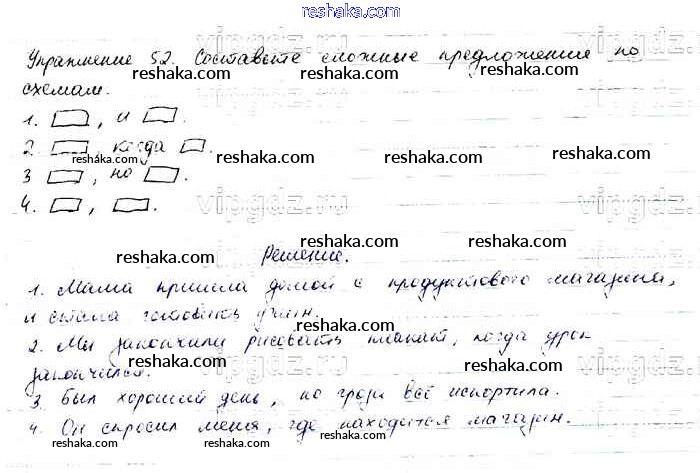 reshaka.com
vipgdz.ru
Упражнение 52. Составьте сложные предложения по
reshaka.com reshaka.com reshaka.com
схемам.
1. , и .
2 , когда .
reshaka.com reshaka.com reshaka.com reshaka.com
3 , но .
vipgdz.ru vipgdz.ru
4. , .
reshaka.com reshaka.com reshaka.com
Решение.
1. Мама пришла домой с продуктового магазина,
reshaka.com reshaka.com reshaka.com
и стала готовить ужин.
2. Мы закончили рисовать плакат, когда урок
reshaka.com reshaka.com reshaka.com
закончился.
vipgdz.ru vipgdz.ru
3. был хороший день, но гроза всё испортила.
reshaka.com reshaka.com reshaka.com
4. Он спросил меня, где находится магазин.
reshaka.com reshaka.com reshaka.com